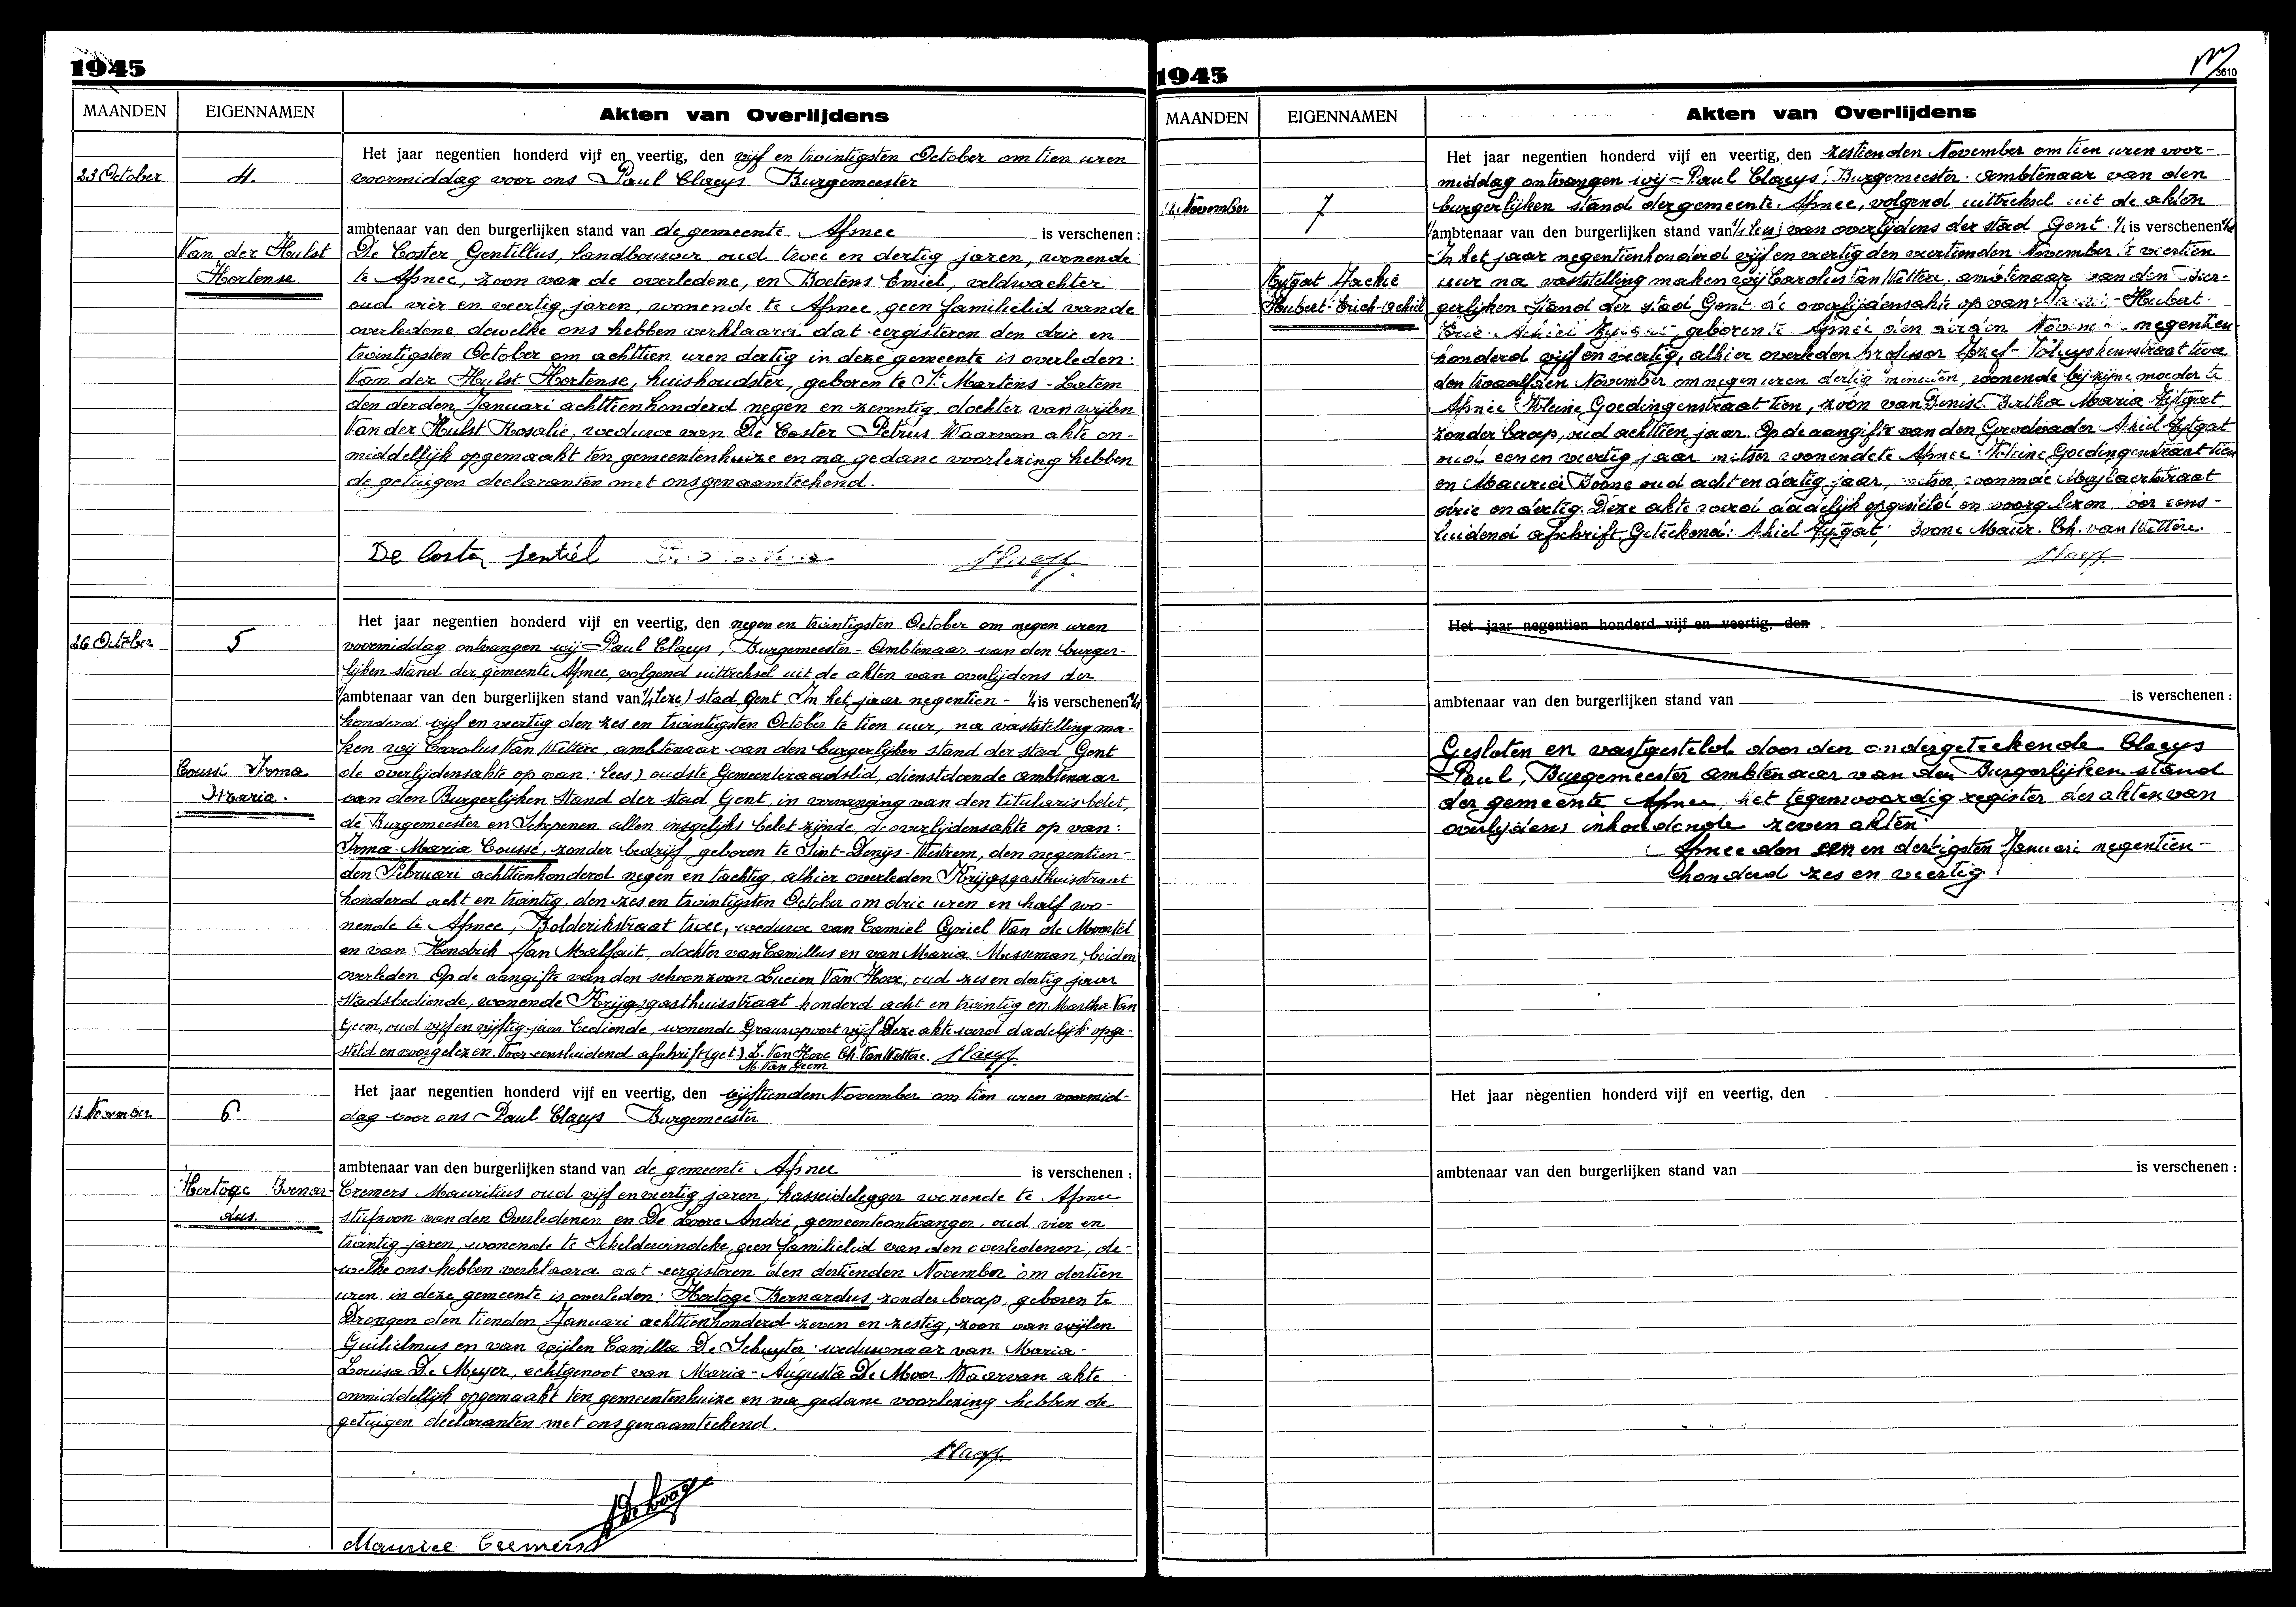 1945
MAANDEN
EIGENNAMEN
Akten van Overlijdens
23 October
4.
Van der Hulst
Hortense.
Het jaar negentien honderd vijf en veertig, den vijf en twintigsten October om tien uren
voormiddag voor ons Paul Claeys Burgemeester
ambtenaar van den burgerlijken stand van de gemeente Afsnee is verschenen :
De Coster Gentillus, landbouwer, oud twee en dertig jaren, wonende
te Afsnee, zoon van de overledene, en Boetens Emiel, veldwachter
oud vier en veertig jaren, wonende te Afsnee, geen familielid van de
overledene, dewelke ons hebben verklaard dat eergisteren den drie en
twintigsten October om achttien uren dertig in deze gemeente is overleden:
Van der Hulst Hortense, huishoudster, geboren te St. Martens-Latem
den derden Januari achttienhonderd negen en zeventig, dochter van wijlen
Van der Hulst Rosalie, weduwe van De Coster Petrus. Waarvan akte on-
middellijk opgemaakt ten gemeentenhuize en na gedane voorlezing hebben
de getuigen declaranten met ons genaamteekend.
De Coster Gentiel
26 October
5
Coussé Irma
Maria.
Het jaar negentien honderd vijf en veertig, den negen en twintigsten October om negen uren
voormiddag ontvangen wij Paul Claeys, Burgemeester-Ambtenaar van den burger-
lijken stand der gemeente Afsnee, volgend uittreksel uit de akten van overlijdens der
ambtenaar van den burgerlijken stand van stad Gent In het jaar negentien- is verschenen
honderd vijf en veertig den zes en twintigsten October te tien uur, na vaststelling ma-
ken wij Carolus Van Wettere, ambtenaar van den burgerlijken stand der stad Gent
de overlijdensakte op van: lees) oudste Gemeenteraadslid, dienstdoende ambtenaar
van den Burgerlijken Stand der stad Gent, in vervanging van den titularis belet,
de Burgemeester en Schepenen allen insgelijks belet zijnde, de overlijdensakte op van:
Irma-Maria Coussé, zonder bedrijf, geboren te Sint-Denijs-Westrem, den negentien-
den Februari achttienhonderd negen en tachtig, alhier overleden Krijgsgasthuisstraat
honderd acht en twintig, den zes en twintigsten October om drie uren en half wo-
nende te Afsnee, Bolderikstraat twee, weduwe van Camiel Cyriel Van de Moortel
en van Hendrik Jan Malfait, dochter van Camillus en van Maria Messeman, beiden
overleden. Op de aangifte van den schoonzoon Lucien Van Hove, oud zes en dertig jaar
stadsbediende, wonende Krijgsgasthuisstraat honderd acht en twintig en Martha Van
Geem, oud vijf en vijftig jaar bediende, wonende Grauwpoort vijf. Deze akte werd dadelijk opge-
steld en voorgelezen. Voor eensluidend afschrift (get.) L. Van Hove Ch. Van Wettere.
M. Van Geem
13 November
6
Hertoge Bernar-
dus.
Het jaar negentien honderd vijf en veertig, den vijftienden November om tien uren voormid-
dag voor ons Paul Claeys Burgemeester
ambtenaar van den burgerlijken stand van de gemeente Afsnee is verschenen :
Cremers Mauritius oud vijf en veertig jaren, kasseidelegger wonende te Afsnee
stiefzoon van den Overledenen en De Loore André, gemeenteontvanger, oud vier en
twintig jaren, wonende te Scheldewindeke, geen familielid van den overledenen, de-
welke ons hebben verklaard dat eergisteren den dertienden November om dertien
uren in deze gemeente is overleden: Hertoge Bernardus, zonder beroep, geboren te
Drongen den tienden Januari achttienhonderd zeven en zestig, zoon van wijlen
Guilielmus en van wijlen Camilla De Schuyter weduwnaar van Maria-
Louisa De Meyer, echtgenoot van Maria-Augusta De Moor. Waarvan akte
onmiddellijk opgemaakt ten gemeentenhuize en na gedane voorlezing hebben de
getuigen declaranten met ons genaamteekend.
Maurice Cremers
1945
3610
MAANDEN
EIGENNAMEN
Akten van Overlijdens
12 November
7
Hubert-Erich-Achiel
Het jaar negentien honderd vijf en veertig, den zestienden November om tien uren voor-
middag ontvangen wij Paul Claeys, Burgemeester-Ambtenaar van den
burgerlijken stand der gemeente Afsnee, volgend uittreksel uit de akten
ambtenaar van den burgerlijken stand van van overlijdens der stad Gent. is verschenen
In het jaar negentienhonderd vijf en veertig den veertienden November te veertien
uur na vaststelling maken wij Carolus Van Wettere, ambtenaar van den Bur-
gerlijken Stand der stad Gent de overlijdensakte op van: Hubert-
Achiel geboren te Afsnee den negentien
honderd vijf en veertig, alhier overleden Professor Jozef straat twee
den twaalfden November om negen uren dertig minuten, wonende bij zijne moeder te
Afsnee Kleine Goedingenstraat tien, zoon van Denise Bertha Maria
zonder beroep, oud achttien jaar. Op de aangifte van den Grootvader Achiel
oud een en veertig jaar metser wonende te Afsnee Kleine Goedingenstraat tien
en Maurice Boone oud acht en dertig jaar, metser, wonende straat
drie en dertig. Deze akte werd dadelijk opgesteld en voorgelezen. Voor eens-
luidend afschrift. Geteekend: Achiel Boone Maur. Ch. van Wettere.
Het jaar negentien honderd vijf en veertig, den
ambtenaar van den burgerlijken stand van is verschenen :
Gesloten en vastgesteld door den ondergeteekende Claeys
Paul, Burgemeester ambtenaar van den Burgerlijken stand
der gemeente Afsnee het tegenwoordig register der akten van
overlijdens inhoudende zeven akten
Afsnee den een en dertigsten Januari negentien-
honderd zes en veertig
Het jaar negentien honderd vijf en veertig, den
ambtenaar van den burgerlijken stand van is verschenen :